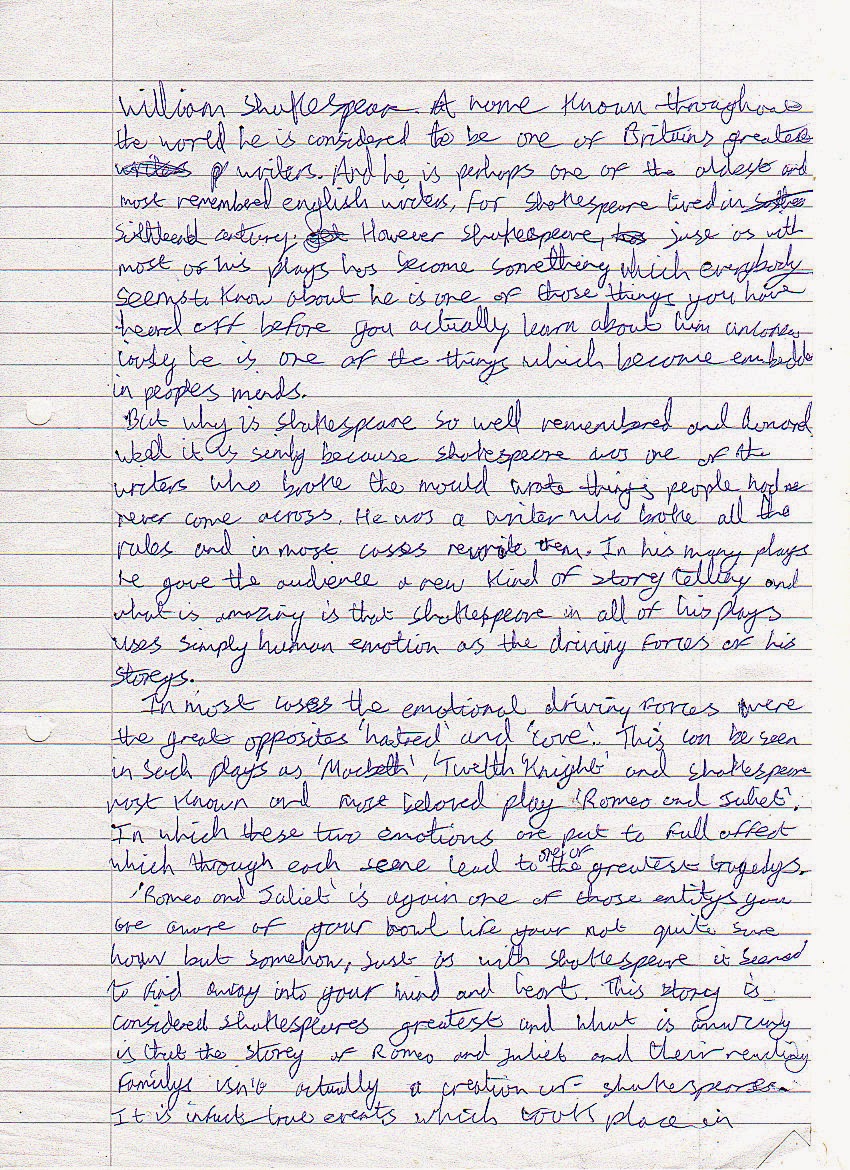 William Shakespear. A name known throughout
the world he is considered to be one of Britains greatest
writers. And he is perhaps one of the oldest and
most remembered english writers, for Shakespeare lived in
century. However Shakespeare, just as with
most of his plays has become something which everybody
seems to know about he is one of those things you have
heard off before you actually learn about him
he is one of the things which become
in peoples minds.
But why is Shakespeare so well remembered and
well it is simly because Shakespeare was one of the
writers who broke the mould wrote things people had
never come across. He was a writer who broke all the
rules and in most cases rewrite them. In his many plays
he gave the audience a new kind of story telling and
what is amazing is that Shakespeare in all of his plays
uses simply human emotion as the driving forces of his
storeys.
In most cases the emotional driving forces were
the great opposites 'hatred' and 'love'. This can be seen
in such plays as 'Macbeth', 'Twelth Knight' and Shakespeare
most known and most beloved play 'Romeo and Juliet'.
In which these two emotions are put to full affect
which through each scene lead to one of the greatest tragedys.
'Romeo and Juliet' is again one of those entitys you
are aware of your like your not quite sure
how but somehow, just as with Shakespeare it seemed
to find away into your mind and heart. This story is
considered Shakespeares greatest and what is amazing
is that the storey of Romeo and Juliet and their
Familys isn't actually a creation of Shakespeares.
It is infact true events which took place in